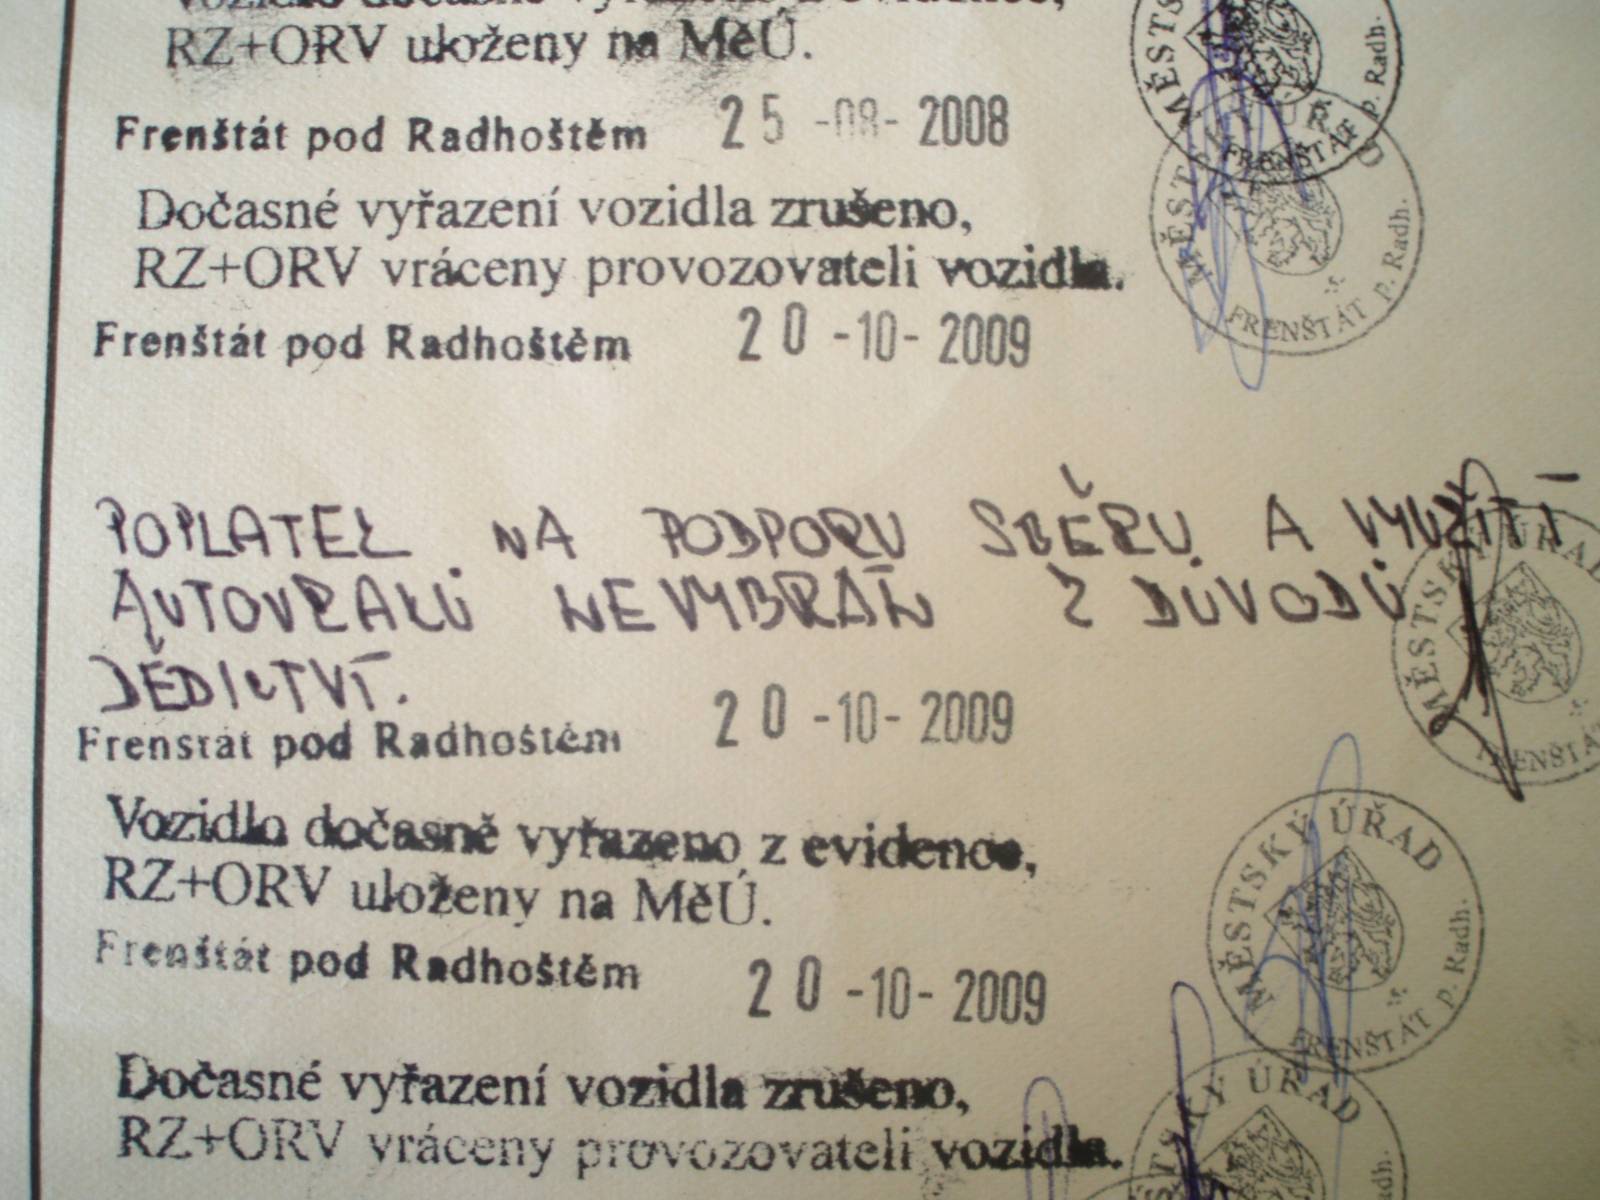 Vozidlo dočasně vyřazeno z evidence,
RZ+ORV uloženy na MěÚ.
Frenštát pod Radhoštěm 25 -08- 2008
MĚSTSKÝ ÚŘAD FRENŠTÁT p. Radh.
Dočasné vyřazení vozidla zrušeno,
RZ+ORV vráceny provozovateli vozidla.
Frenštát pod Radhoštěm 20 -10- 2009
MĚSTSKÝ ÚŘAD FRENŠTÁT p. Radh.
POPLATEK NA PODPORU SBĚRU A VYUŽITÍ
AUTOVRAKŮ NEVYBRÁN Z DŮVODŮ
DĚDICTVÍ.
Frenštát pod Radhoštěm 20 -10- 2009
MĚSTSKÝ ÚŘAD FRENŠTÁT
Vozidlo dočasně vyřazeno z evidence,
RZ+ORV uloženy na MěÚ.
Frenštát pod Radhoštěm 20 -10- 2009
MĚSTSKÝ ÚŘAD FRENŠTÁT p. Radh.
Dočasné vyřazení vozidla zrušeno,
RZ+ORV vráceny provozovateli vozidla.
MĚSTSKÝ ÚŘAD p. Radh.